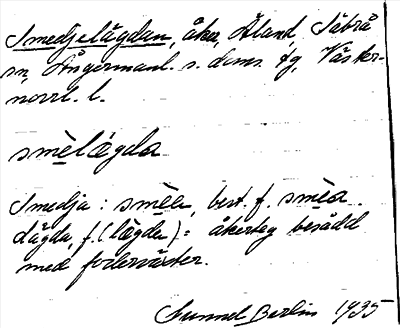 Smedjelägdan, åker, Åland, Säbrå
sn, Ångermanl. s. doms. fg, Väster-
norrl. l.
smèlägda
Smedja : smèa, best. f. smèa.
Lägda, f. (lägda) : åkerteg besådd
med foderväxter.
Gunnel Berlin 1935